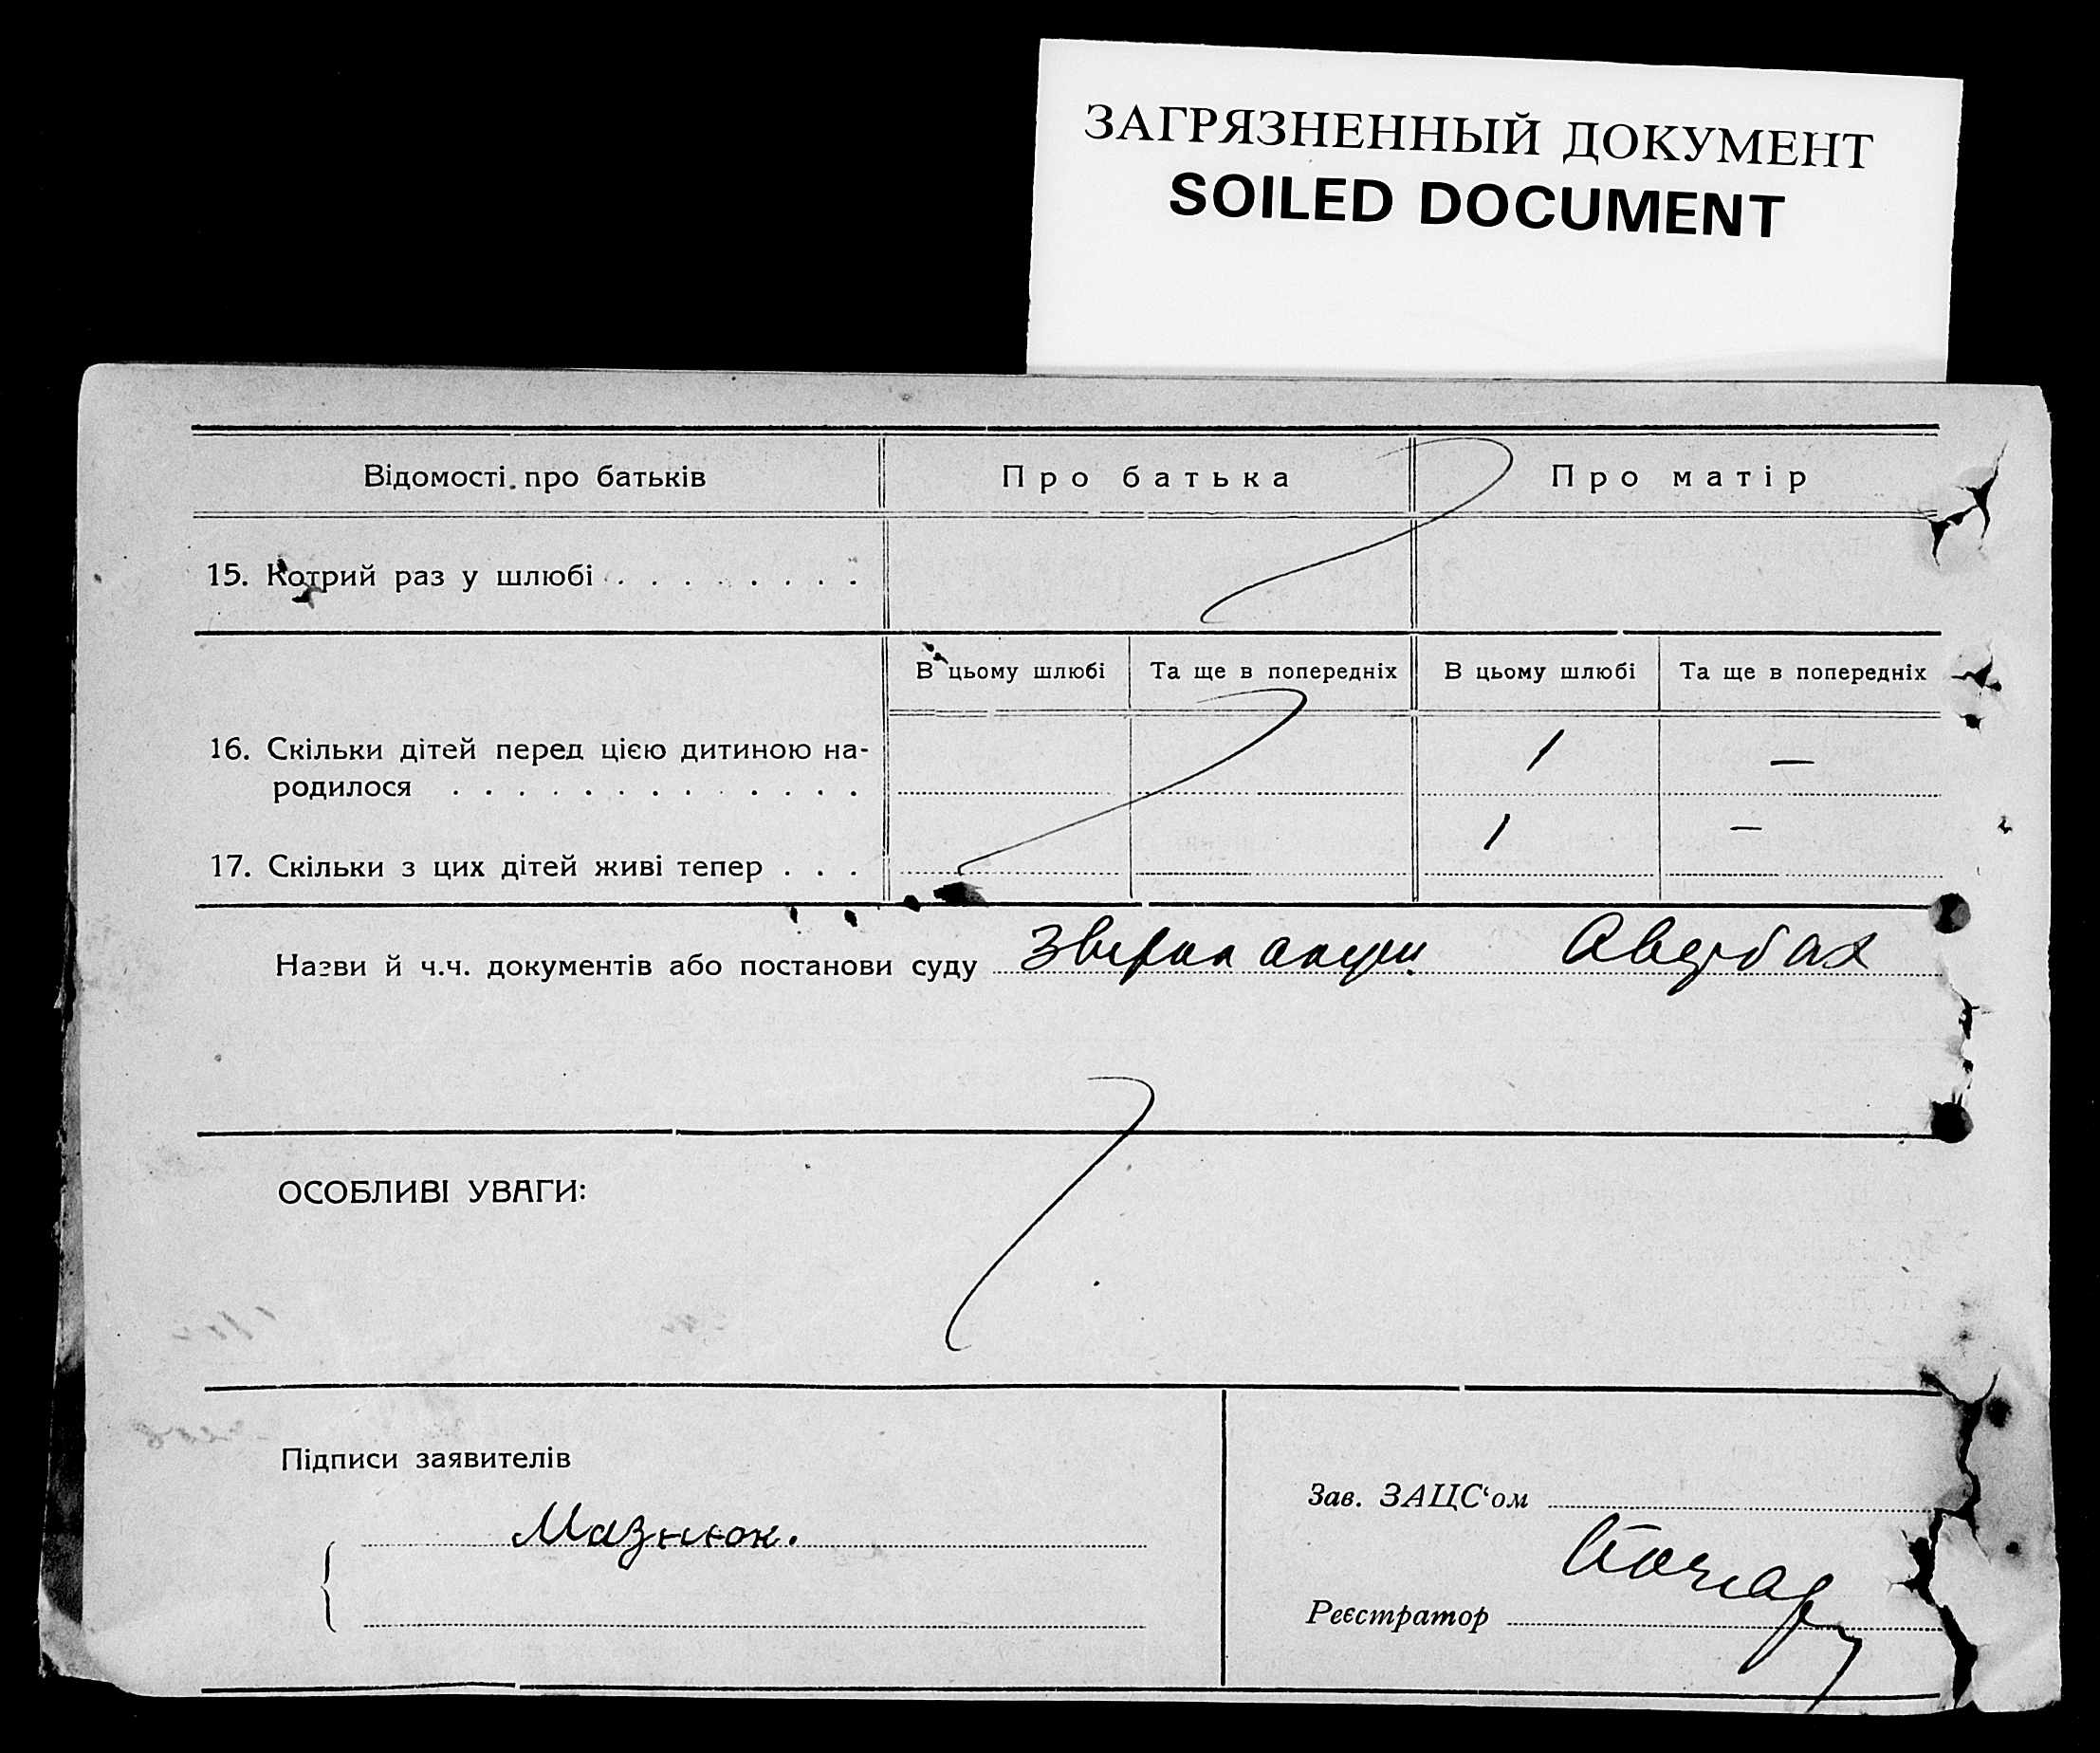 ЗАГРЯЗНЕННЫЙ ДОКУМЕНТ
SOILED DOCUMENT
Відомості про батьків
Про батька
Про матір
15. Котрий раз у шлюбі . . . . . . . .
В цьому шлюбі
Та ще в попередніх
В цьому шлюбі
Та ще в попередніх
16. Скільки дітей перед цією дитиною на-
родилося . . . . . . . . . . . . .
1 —
17. Скільки з цих дітей живі тепер . . .
1 —
Назви й ч.ч. документів або постанови суду Авербах
ОСОБЛИВІ УВАГИ:
Підписи заявителів
Мазнюк.
Зав. ЗАЦС‘ом
Реєстратор